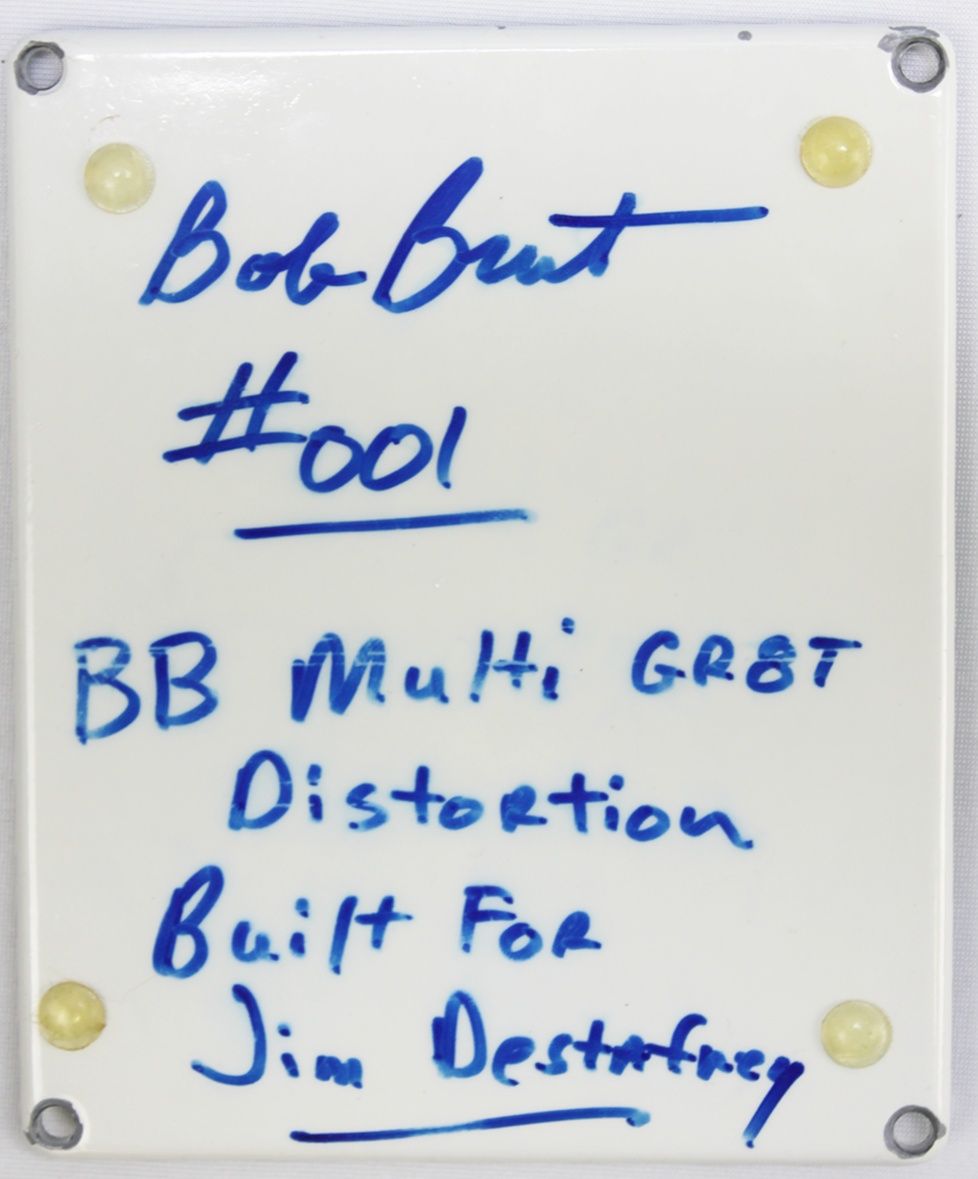 Bob Brut
#001
BB Multi GR8T
Distortion
Built FoR
Jim Destafney